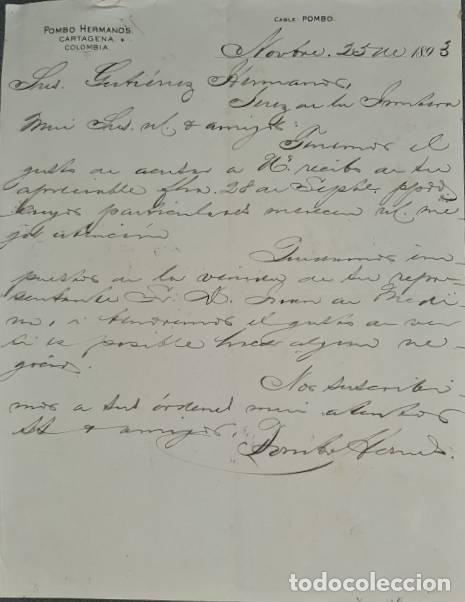 POMBO HERMANOS.
CARTAGENA,
COLOMBIA.
CABLE: POMBO.
Novbre. 25 de 1893
Sres. Gutiérrez Hermanos,
Jerez de la Frontera
Muy Sres. n/. & amigos:
Tenemos el
gusto de acusar a Vs. recibo de su
apreciable fha. 28 de Septe. ppdo.
cuyos particulares merecen n/. me-
jor atención
Quedamos im-
puestos de la venida de su repre-
sentante Sr. D. Juan de Medi
na, i tendremos el gusto de ver
si es posible hacer algun ne-
gocio.
Nos suscribi-
mos a sus órdenes muy atentos
SS & amigos,
Pombo Hermos.
todocoleccion.net